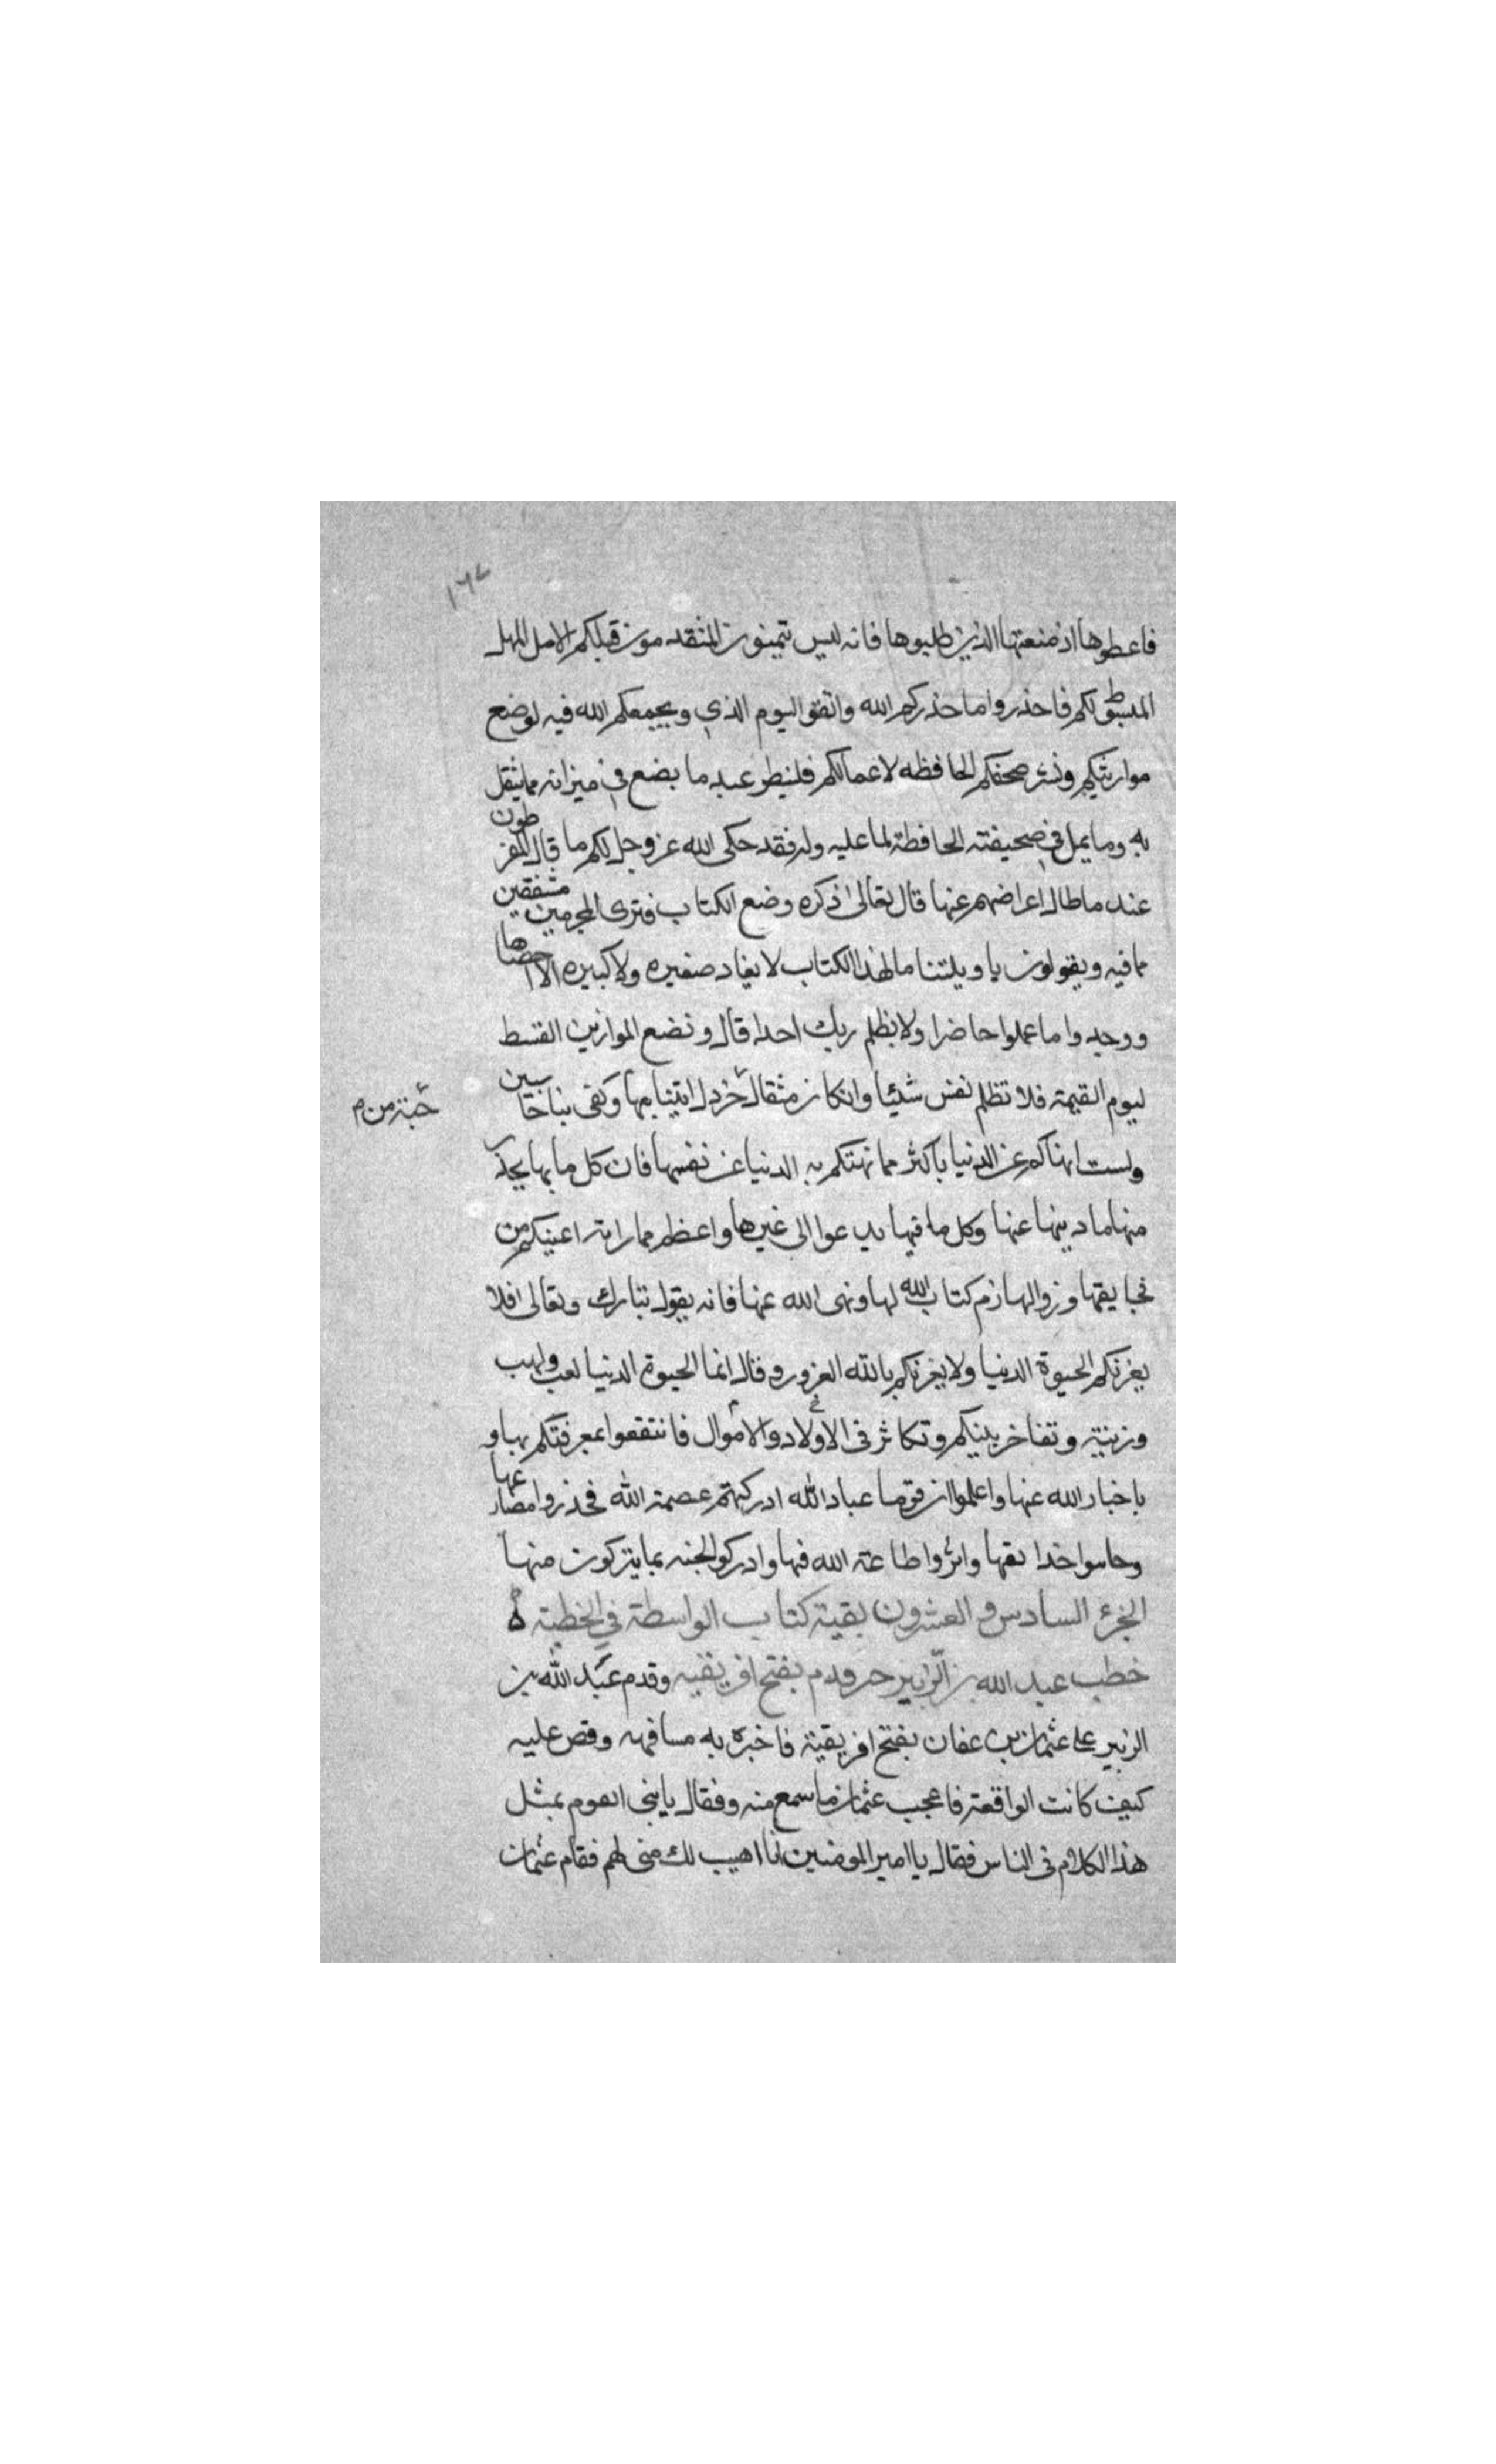 ١٦٧
فاعطوها اذ منعتها الذين طلبوها فانه ليس يتمنون المتقدمون قبلكم الا مل المهل
المبسوط لكم فاحذروا ما حذركم الله واتقوا اليوم الذي ويجمعكم الله فيه لوضع
موازينكم ونشر صحفكم الحافظه لاعمالكم فلينطر عبد ما يضع في ميزانه مما يثقل
به وما يمل في صحيفته الحافظة لما عليه وله فقد حكى الله عز وجل لكم ما قال المفرطون
عند ما طال اعراضهم عنها قال تعالى ذكره وضع الكتاب فترى المجرمين مشفقين
مما فيه ويقولون يا ويلتنا ما لهذا الكتاب لا يغاد صغيره ولا كبيره الا احصاها
ووجدوا ما عملوا حاضرا ولا يظلم ربك احدا قال ونضع الموازين القسط
ليوم القيمة فلا تظلم نفس شيئا وان كان مثقال خردل اتينا بها وكفى بنا حاسبين
حبة من م
ولست انهاكم عن الدنيا باكثر مما نهتكم به الدنيا عن نفسها فان كل ما بها يحذر
منها ما دينها عنها وكل ما فيها يدعوا الى غيرها واعظم مما راته اعينكم من
فجايعها وزوالها ذم كتاب الله لها ونهى الله عنها فانه يقول تبارك وتعالى افلا
يغرنكم الحيوة الدنيا ولا يغرنكم بالله الغرور وقال انما الحيوة الدنيا لعب ولهب
وزينة وتفاخر بينكم وتكاثر في الاولاد والاموال فانتفعوا بمعرفتكم بها و
باخبار الله عنها واعلموا ان قوما عباد الله ادركهم عصمة الله فحذروا مصارعها
وجانبوا خدايعها واثروا طاعة الله فيها وادركوا الجنه بما يتركون منها
الجزء السادس والعشرون بقية كتاب الواسطة في الخطبة
خطب عبد الله بن الزبير حين قدم بفتح افريقيه وقدم عبد الله بن
الزبير على عثمان بن عفان بفتح افريقية فاخبره به مسافهه وقص عليه
كيف كانت الواقعة فاعجب عثمان ما سمع منه وفقال يا بني اتقوم بمثل
هذا الكلام في الناس فقال يا امير المومنين انا اهيب لك مني لهم فقام عثمان